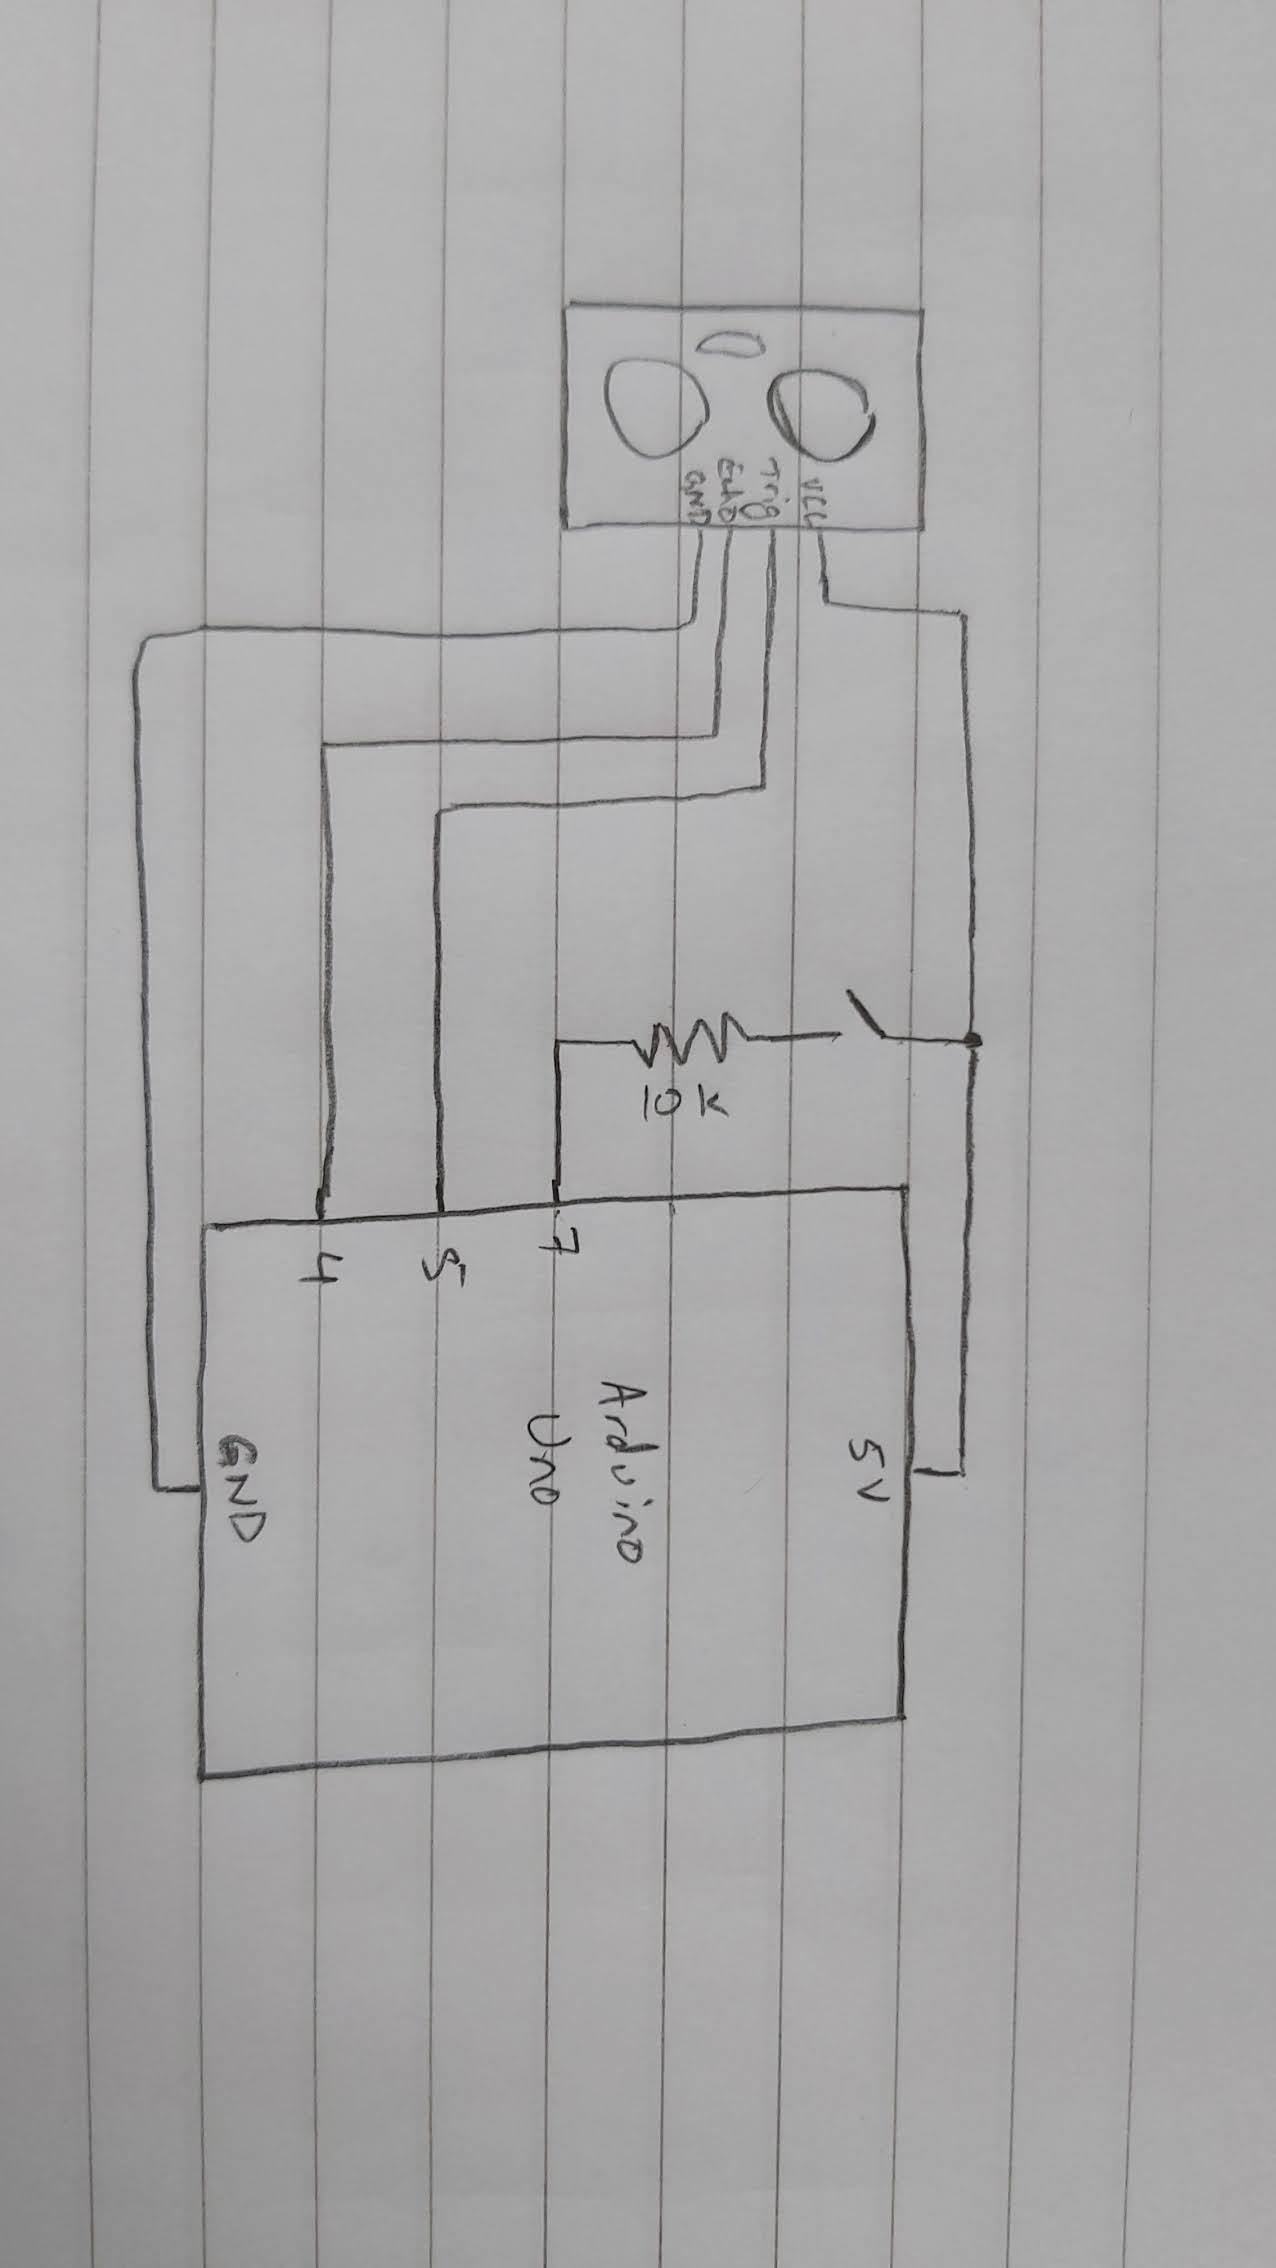 VCC
Trig
Echo
GND
10K
5V
Arduino
Uno
7
5
4
GND